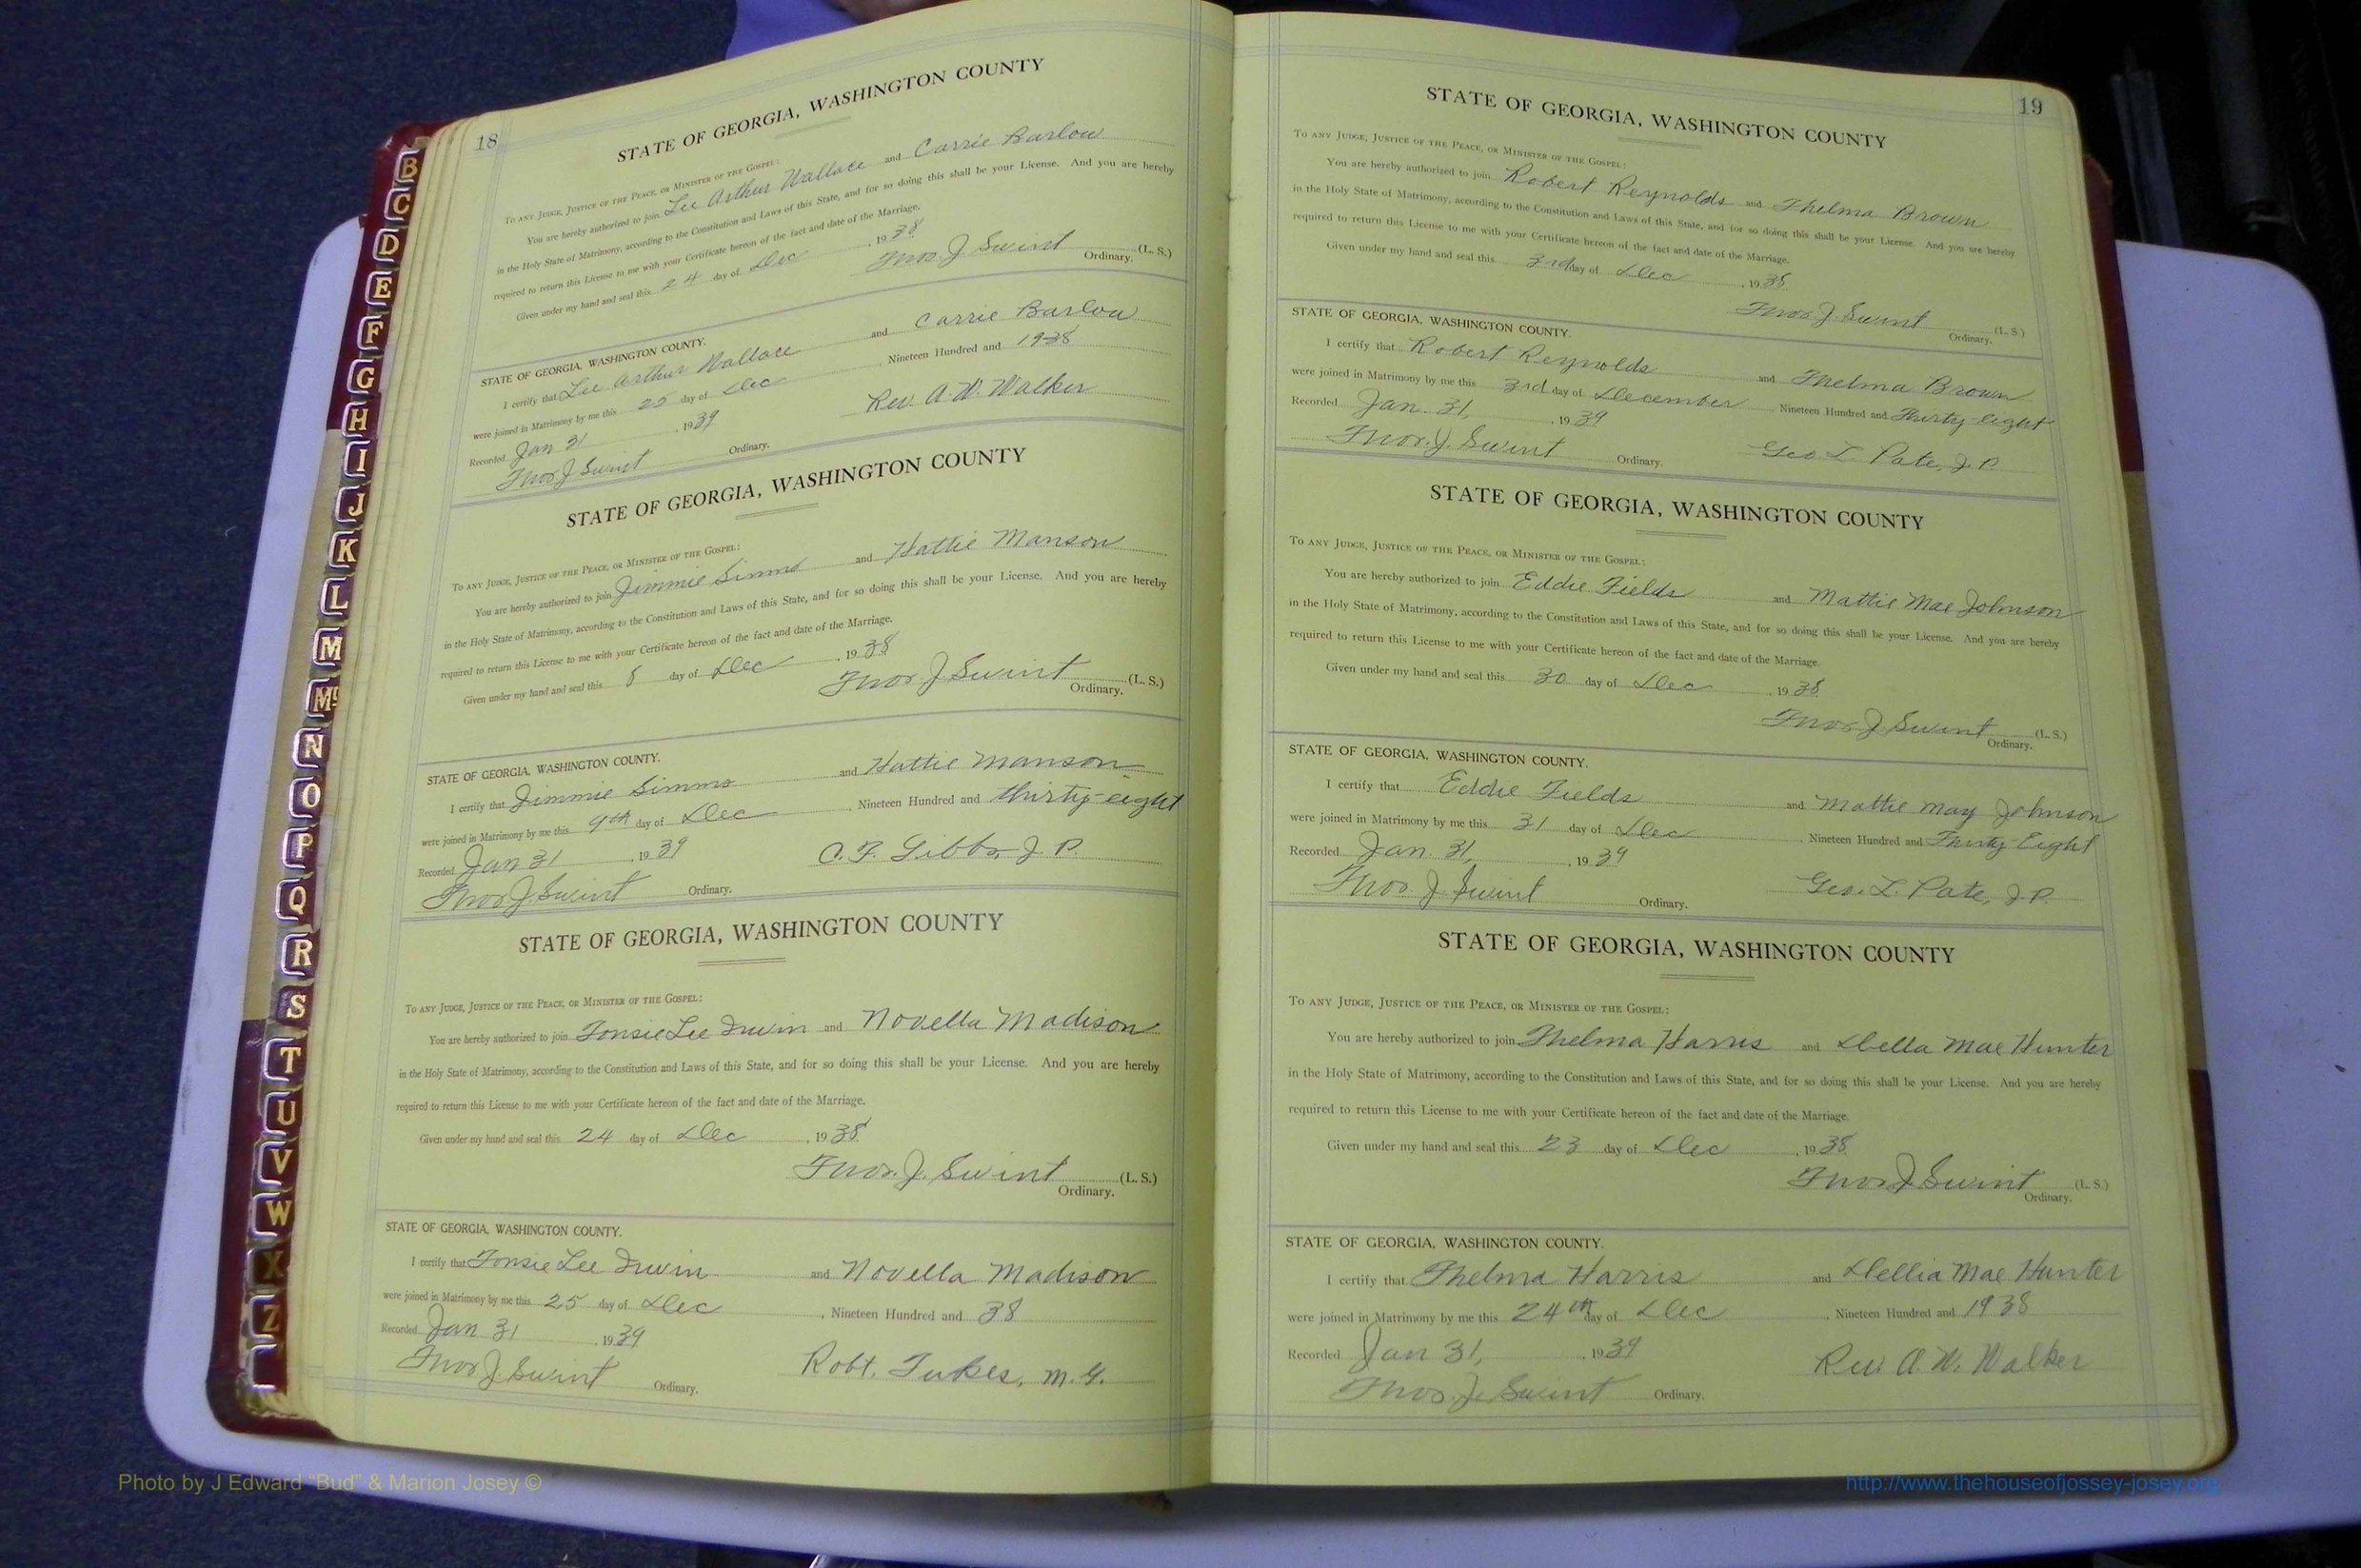 18
STATE OF GEORGIA, WASHINGTON COUNTY
TO ANY JUDGE, JUSTICE OF THE PEACE, OR MINISTER OF THE GOSPEL:
You are hereby authorized to join Lee Arthur Wallace and Carrie Barlow
in the Holy State of Matrimony, according to the Constitution and Laws of this State, and for so doing this shall be your License. And you are hereby
required to return this License to me with your Certificate hereon of the fact and date of the Marriage.
Given under my hand and seal this 24 day of Dec, 1938
Thos. J. Swint (L. S.)
Ordinary.
STATE OF GEORGIA, WASHINGTON COUNTY.
I certify that Lee Arthur Wallace and Carrie Barlow
were joined in Matrimony by me this 25 day of Dec, Nineteen Hundred and 1938
Recorded Jan 31, 1939 Rev. A. W. Walker
Thos J Swint Ordinary.
STATE OF GEORGIA, WASHINGTON COUNTY
TO ANY JUDGE, JUSTICE OF THE PEACE, OR MINISTER OF THE GOSPEL:
You are hereby authorized to join Jimmie Simms and Hattie Manson
in the Holy State of Matrimony, according to the Constitution and Laws of this State, and for so doing this shall be your License. And you are hereby
required to return this License to me with your Certificate hereon of the fact and date of the Marriage.
Given under my hand and seal this 8 day of Dec, 1938
Thos J Swint (L. S.)
Ordinary.
STATE OF GEORGIA, WASHINGTON COUNTY.
I certify that Jimmie Simms and Hattie Manson
were joined in Matrimony by me this 9th day of Dec, Nineteen Hundred and thirty-eight
Recorded Jan 31, 1939 C. F. Gibbs, J. P.
Thos. J. Swint Ordinary.
STATE OF GEORGIA, WASHINGTON COUNTY
TO ANY JUDGE, JUSTICE OF THE PEACE, OR MINISTER OF THE GOSPEL:
You are hereby authorized to join Fonsie Lee Irwin and Novella Madison
in the Holy State of Matrimony, according to the Constitution and Laws of this State, and for so doing this shall be your License. And you are hereby
required to return this License to me with your Certificate hereon of the fact and date of the Marriage.
Given under my hand and seal this 24 day of Dec, 1938
Thos. J. Swint (L. S.)
Ordinary.
STATE OF GEORGIA, WASHINGTON COUNTY.
I certify that Fonsie Lee Irwin and Novella Madison
were joined in Matrimony by me this 25 day of Dec, Nineteen Hundred and 38
Recorded Jan 31, 1939
Thos J. Swint Ordinary. Robt. Tukes, M. G.
19
STATE OF GEORGIA, WASHINGTON COUNTY
TO ANY JUDGE, JUSTICE OF THE PEACE, OR MINISTER OF THE GOSPEL:
You are hereby authorized to join Robert Reynolds and Thelma Brown
in the Holy State of Matrimony, according to the Constitution and Laws of this State, and for so doing this shall be your License. And you are hereby
required to return this License to me with your Certificate hereon of the fact and date of the Marriage.
Given under my hand and seal this 3rd day of Dec, 1938
Thos. J. Swint (L. S.)
Ordinary.
STATE OF GEORGIA, WASHINGTON COUNTY.
I certify that Robert Reynolds and Thelma Brown
were joined in Matrimony by me this 3rd day of December, Nineteen Hundred and Thirty-eight
Recorded Jan. 31, 1939
Thos. J. Swint Ordinary. Geo. L. Pate, J. P.
STATE OF GEORGIA, WASHINGTON COUNTY
TO ANY JUDGE, JUSTICE OF THE PEACE, OR MINISTER OF THE GOSPEL:
You are hereby authorized to join Eddie Fields and Mattie Mae Johnson
in the Holy State of Matrimony, according to the Constitution and Laws of this State, and for so doing this shall be your License. And you are hereby
required to return this License to me with your Certificate hereon of the fact and date of the Marriage.
Given under my hand and seal this 30 day of Dec, 1938
Thos J Swint (L. S.)
Ordinary.
STATE OF GEORGIA, WASHINGTON COUNTY.
I certify that Eddie Fields and Mattie May Johnson
were joined in Matrimony by me this 31 day of Dec, Nineteen Hundred and Thirty Eight
Recorded Jan. 31, 1939
Thos. J. Swint Ordinary. Geo. L. Pate, J. P.
STATE OF GEORGIA, WASHINGTON COUNTY
TO ANY JUDGE, JUSTICE OF THE PEACE, OR MINISTER OF THE GOSPEL:
You are hereby authorized to join Thelma Harris and Della Mae Hunter
in the Holy State of Matrimony, according to the Constitution and Laws of this State, and for so doing this shall be your License. And you are hereby
required to return this License to me with your Certificate hereon of the fact and date of the Marriage.
Given under my hand and seal this 23 day of Dec, 1938
Thos J Swint (L. S.)
Ordinary.
STATE OF GEORGIA, WASHINGTON COUNTY.
I certify that Thelma Harris and Dellia Mae Hunter
were joined in Matrimony by me this 24th day of Dec, Nineteen Hundred and 1938
Recorded Jan 31, 1939 Rev. A. W. Walker
Thos. J. Swint Ordinary.
B
C
D
E
F
G
H
I
J
K
L
M
Mc
N
O
P
Q
R
S
T
U
V
W
X
Z
Photo by J Edward “Bud” & Marion Josey ©
http://www.thehouseofjossey-josey.org